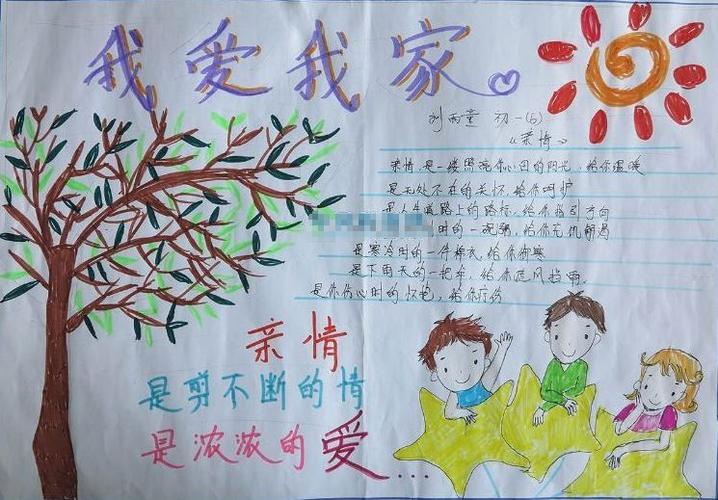 我爱我家
刘雨童 初一(6)
《亲情》
亲情,是一缕照亮你心田的阳光,给你温暖
是无处不在的关怀,给你呵护
是人生道路上的路标,给你指引方向
时的一泓泉,给你充饥解渴
是寒冷时的一件棉衣,给你御寒
是下雨天的一把伞,给你遮风挡雨,
是你伤心时的怀抱,给你疗伤
亲情
是剪不断的情
是浓浓的爱...